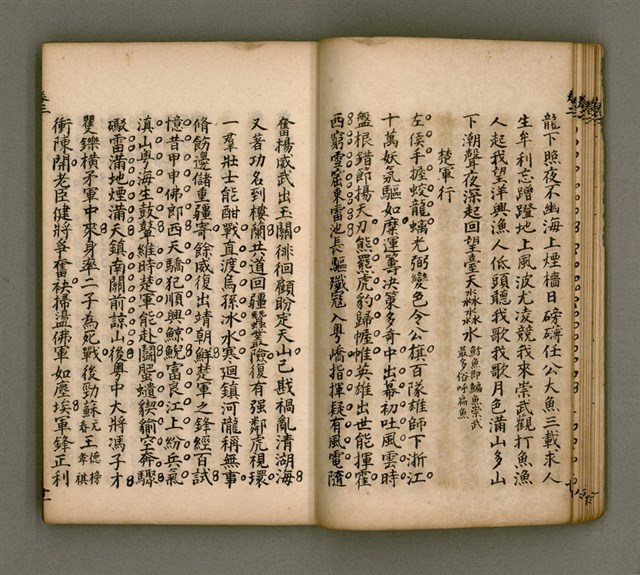 龍下照夜不幽海上煙檣日磅礴任公大魚三載求人
生牟利忘蹭蹬地上風波尤凌競我來崇武觀打魚漁
人起我望洋興漁人低頭聽我歌我歌月色滿山多山
下潮聲夜深起回望臺天淼淼水魴魚即鯿魚崇武最多俗呼扁魚
楚軍行
左侯手握蛟龍螭光弼變色令公旗百隊雄師下浙江
十萬妖氛驅如麈運籌決策多奇中出幕初吐風雲時
盤根錯節揚天刀熊羆虎豹歸帷帷英雄出世能揮霍
西窮雪窟東雷池長驅殲寇入粵嶠指揮疑有風電隨
奮揚威武出玉關徘徊顧盼定天山已戡禍亂清湖海
又著功名到樓蘭共道回疆蠶叢險復有強鄰虎視環
一羣壯士能酣戰直渡烏孫冰水寒廻鎮河隴稱無事
脩飭邊儲重疆寄餘威復出靖朝鮮楚軍之鋒經百試
憶昔甲申佛郎西天驕犯順興鯨鯢富良江上紛兵氣
滇山粵海生鼓鼙維時楚軍能赴鬬蜑蠨猰㺄空奔驟
礮雷滿地煙滿天鎮南關前諒山後粵中大將馮子才
矍鑠橫矛軍中來身率二子為死戰後勁蘇元春王德榜孝祺
衝陳開老臣健將爭奮袂掃盪佛軍如塵埃軍鋒正利